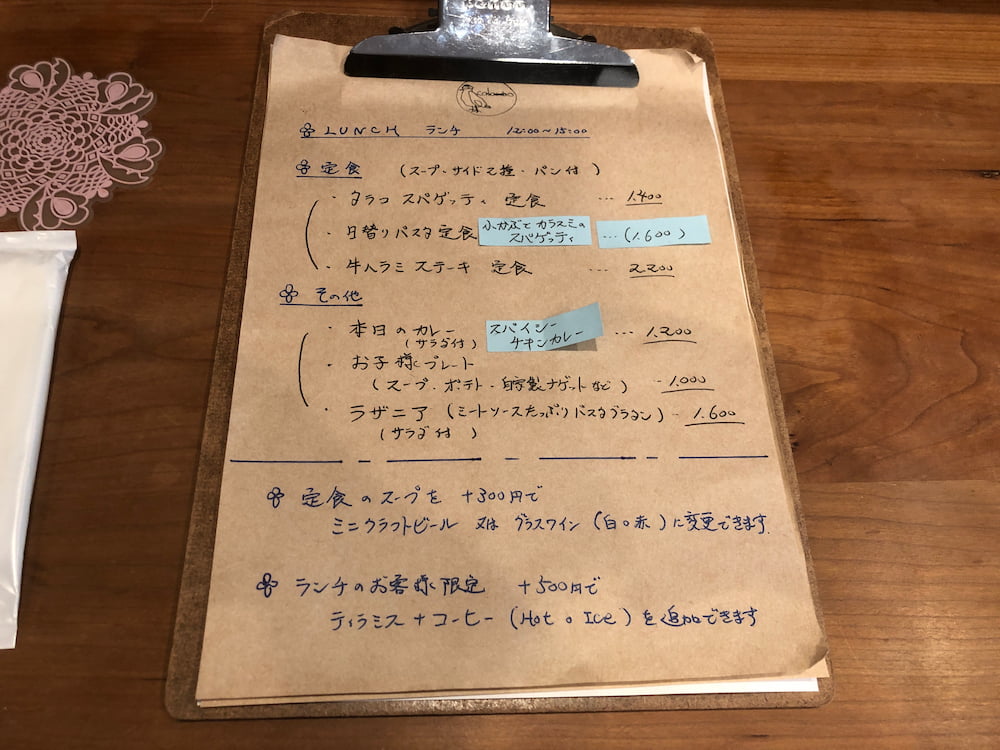 colombo
LUNCH ランチ 12:00~15:00
定食 (スープ・サイド2種・パン付)
・タラコ スパゲッティ 定食 … 1.400
・日替りパスタ定食 小かぶとカラスミの スパゲッティ …(1.600)
・牛ハラミ ステーキ 定食 … 2.200
その他
・本日のカレー スパイシー チキンカレー … 1.200
(サラダ付)
・お子様プレート
(スープ・ポテト・自家製ナゲットなど) - 1.000
・ラザニア (ミートソースたっぷりパスタグラタン) - 1.600
(サラダ付)
定食のスープを +300円で
ミニクラフトビール 又は グラスワイン (白 o 赤) に変更できます.
ランチのお客様限定 +500円で
ティラミス + コーヒー (Hot o Ice) を追加できます